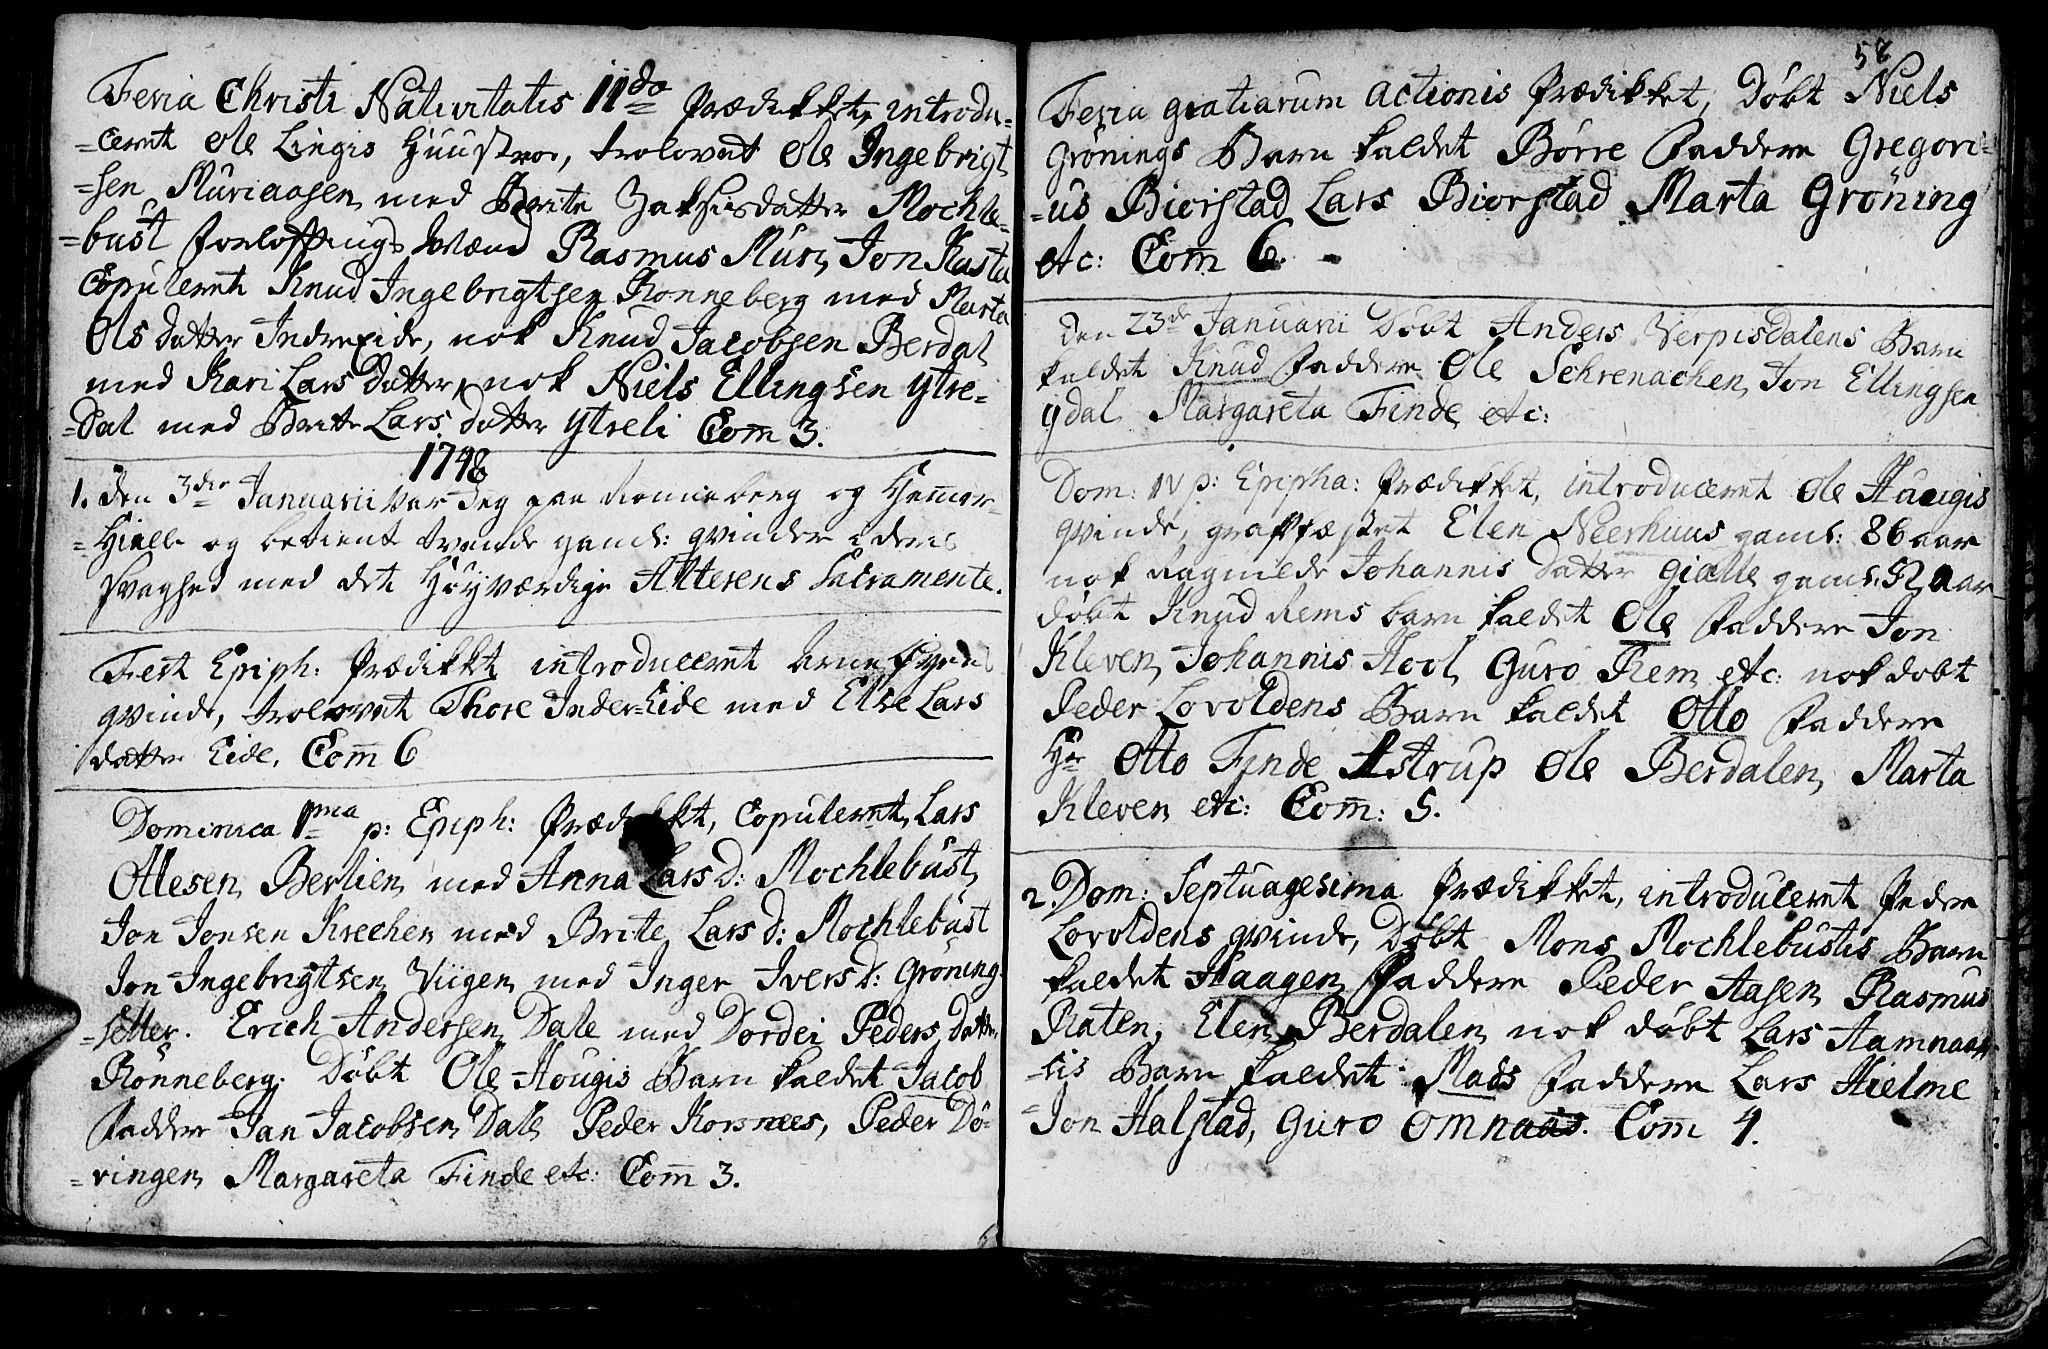 Feria Christi Nativitatis IIdo Prædikket, introdu-
=ceret Ole Lingis Huustroe, trolovet Ole Ingebrigt
=sen Muriaasen med Berite Jakobsdatter Mochle-
=bust Forlofftings Mænd Rasmus Muri, Jon Kasta
Copuleret Knud Ingebrigtsen Rønneberg med Marta
Ols datter Indreeide, nok Knud Jacobsen Berdal
med Kari Lars datter, nok Niels Ellingsen ytre-
=dal med Britte Lars datter ytreli Com̄ 3.
1748
1. den 3die Januarii var Jeg paa Rønneberg og Hemer-
=Hielle og betient tvende gaml: qvinder i deres
svaghed med det Høyværdige Alterens Sacramente.
Fest Epiph: Prædikket introduceret Arne
qvinde, trolovet Thore Inder=Eide med Else Lars
datter Eide. Com̄ 6
Dominica 1ma p: Epiph: Prædikket, Copuleret, Lars
Ottesen Berlien med Anna Lars d: Mochlebust,
Jon Jonsen Kreeken med Brite Lars d: Mochlebust
Jon Ingebrigtsen Viigen med Inger Ivers d: Grøning
=setter. Erich Andersen Dale med Dordei Peders datter
Rønneberg. Døbt Ole Hougis Barn kaldet Jacob
Faddere Jan Jacobsen Dale Peder Korsnees, Peder Dö-
=vingen Margareta Finde etc: Com̄ 3.
58
Feria gratiarum actionis Prædikket, Døbt Niels
Grønings Barn kaldet Børre Faddere Gregori=
=us Biorstad Lars Biorstad Marta Gröning
etc: Com̄ 6.
Den 23de Januarii Døbt Anders Verpisdalens Barn
kaldet Knud Faddere Ole Schrenachen, Jon Ellingsen
ydal Margareta Finde etc:
Dom: IV p: Epipha: Prædikket, introduceret Ole Haugis
qvinde, graffæstet Elen Neerhuus gaml: 86 aar
nok Ragnilde Johannis Datter gialle gaml. 52 aar
døbt Knud Rems barn kaldet Ole Faddere Jon
Kleven, Johannis Hool, Guro Rem etc: nok døbt
Peder Lovoldens Barn kaldet Otto Faddere
Hr Otto Finde Astrup Ole Berdalen, Marta
Kleven etc: Com̄: 5.
2. Dom: Septuagesima Prædikket, introduceret Peder
Lovoldens qvinde, Døbt Mons Mochlebustis Barn
kaldet Haagen Faddere Peder Aasen Rasmus
Raten, Elen Berdalen nok døbt Lars Hamnaas
=sis Barn kaldet Mads Faddere Lars Hielme
Jon Halstad, Guro Omnaas. Com̄ 4.